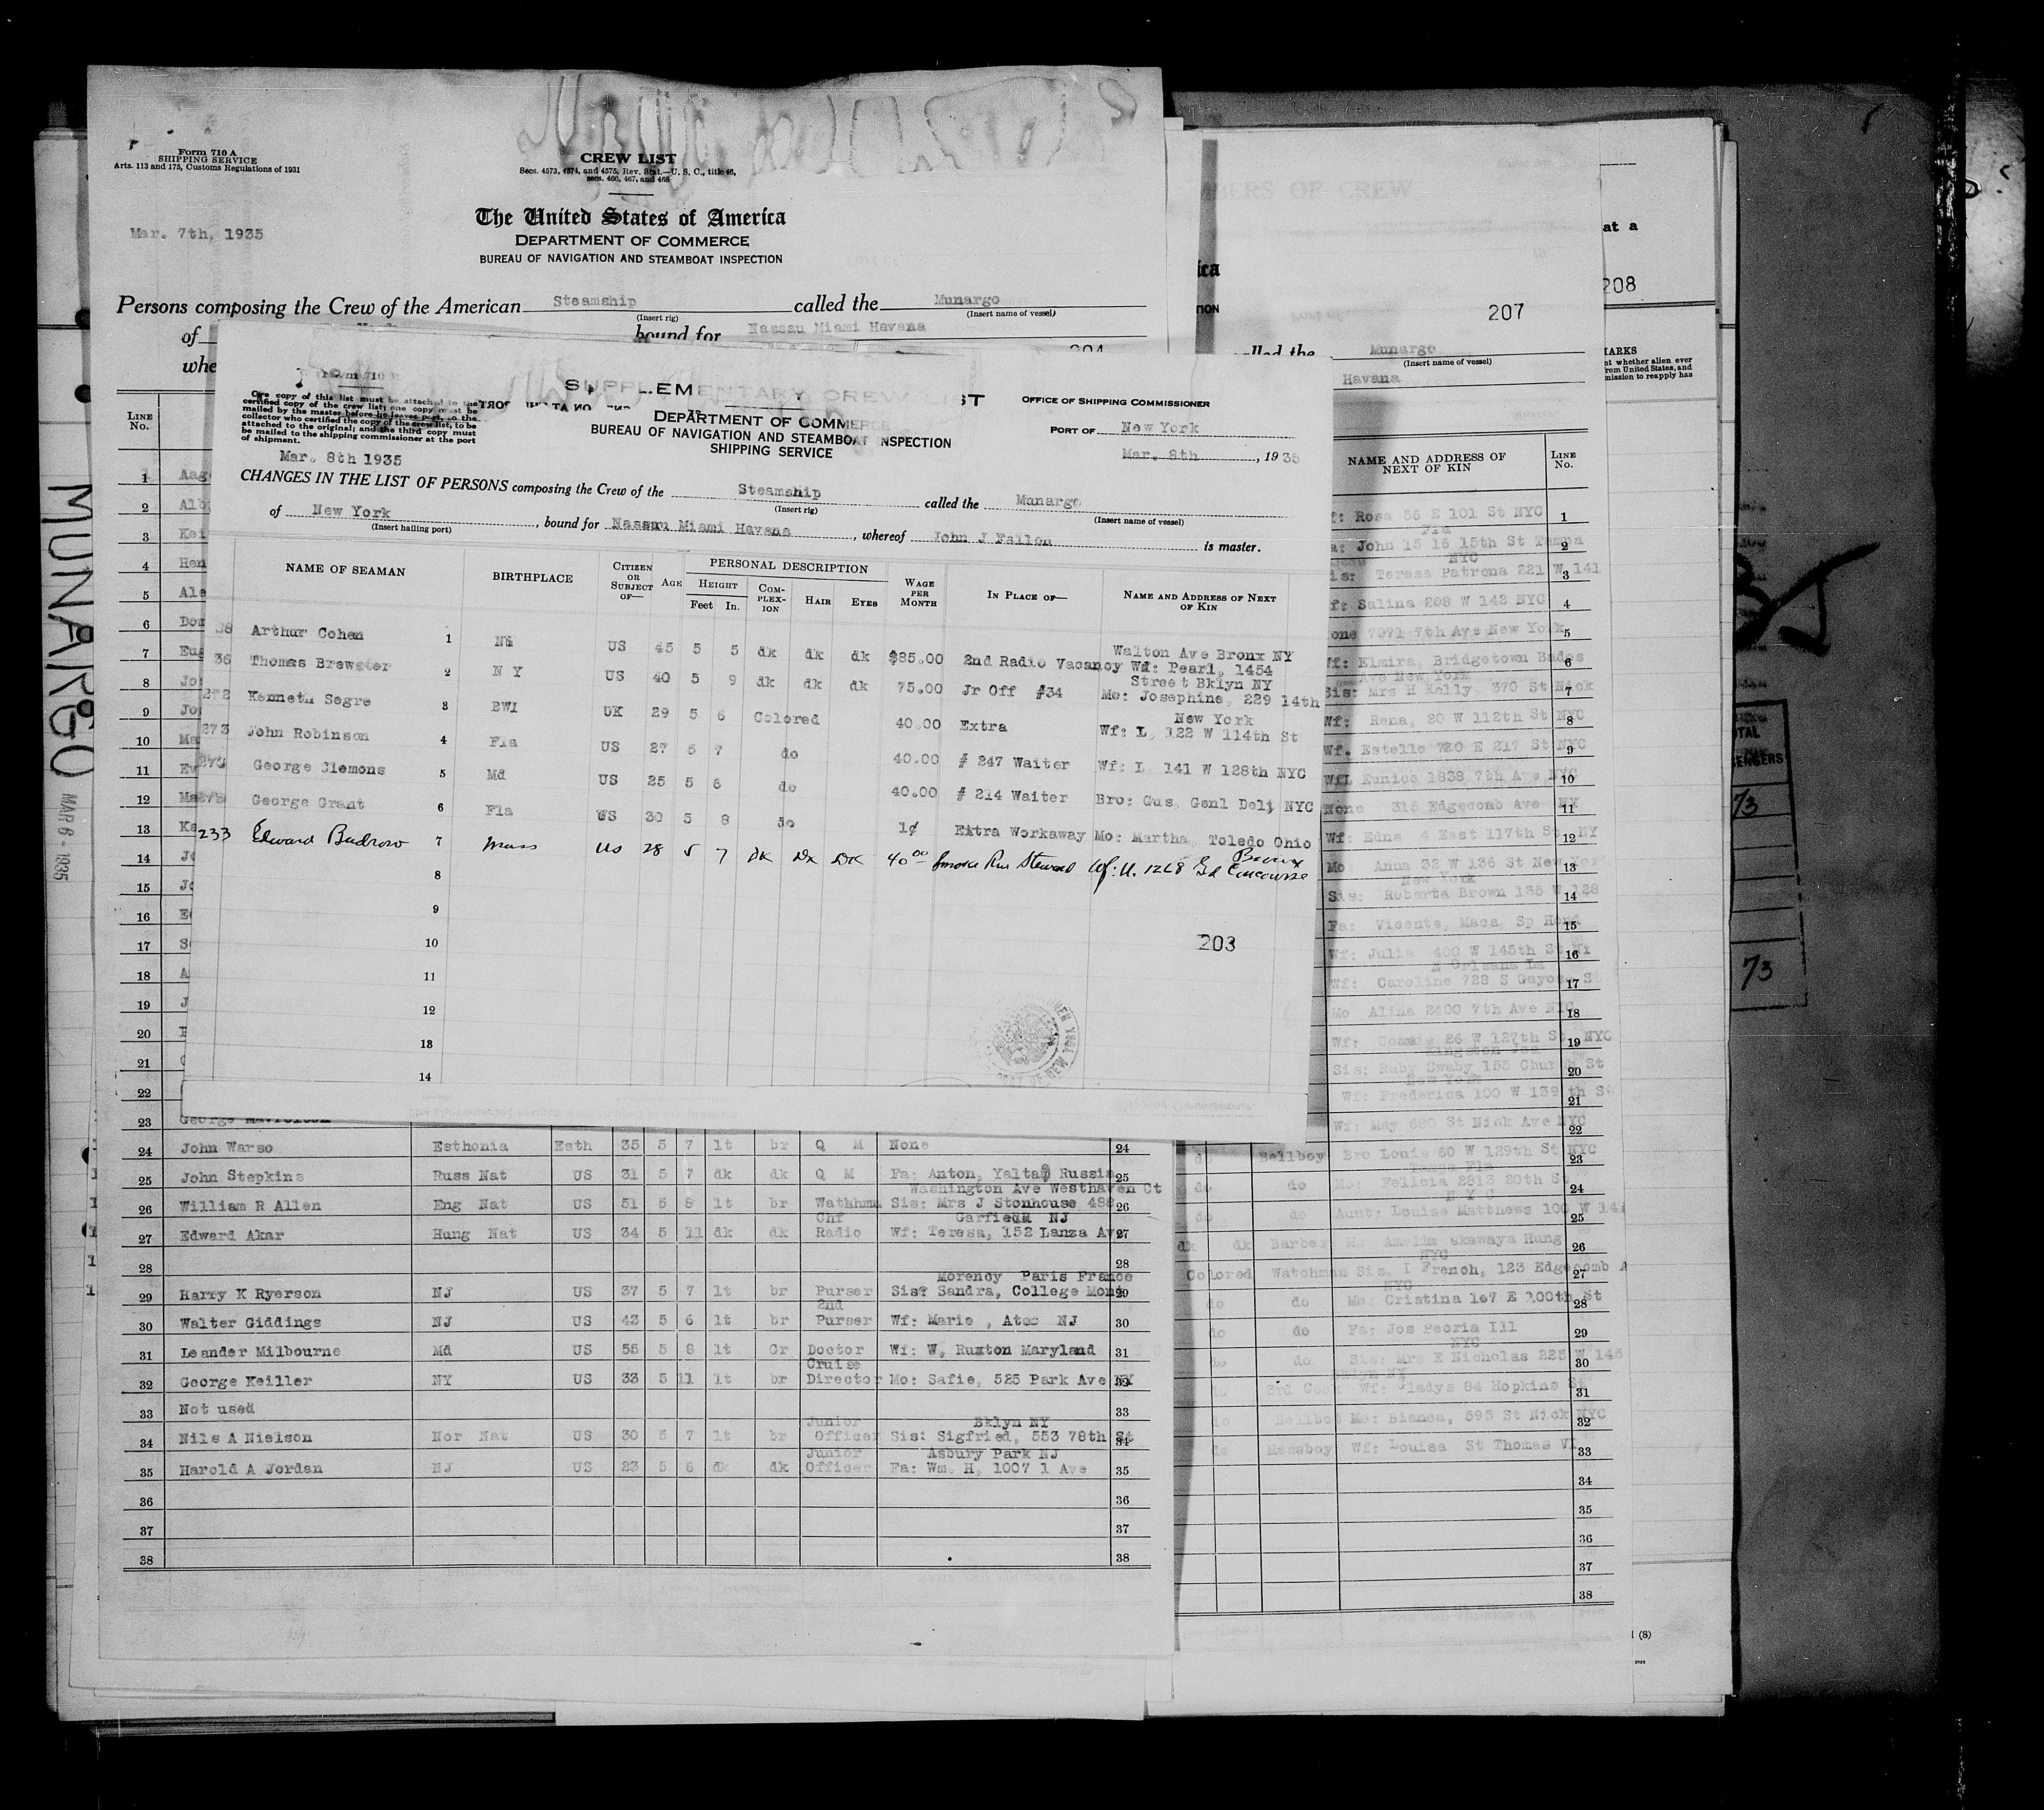 Form 710 A
SHIPPING SERVICE
Arts. 113 and 175, Customs Regulations of 1931
CREW LIST
Secs. 4573, 4574, and 4575, Rev. Stat.—U. S. C., title 46,
secs. 466, 467, and 468
The United States of America
DEPARTMENT OF COMMERCE
BUREAU OF NAVIGATION AND STEAMBOAT INSPECTION
Mar. 7th, 1935
Persons composing the Crew of the American Steamship called the Munargo
(Insert rig) (Insert name of vessel)
of bound for Nassau Miami Havana
204
LINE No.
SUPPLEMENTARY CREW LIST
One copy of this list must be attached to the
certified copy of the crew list; one copy must be
mailed by the master before he leaves port, to the
collector who certified the copy of the crew list, to be
attached to the original; and the third copy must
be mailed to the shipping commissioner at the port
of shipment.
DEPARTMENT OF COMMERCE
BUREAU OF NAVIGATION AND STEAMBOAT INSPECTION
SHIPPING SERVICE
OFFICE OF SHIPPING COMMISSIONER
PORT OF New York
Mar. 8th, 1935
Mar. 8th 1935
CHANGES IN THE LIST OF PERSONS composing the Crew of the Steamship called the Munargo
(Insert rig) (Insert name of vessel)
of New York, bound for Nassau Miami Havana, whereof John J Fallon is master.
(Insert hailing port)
NAME OF SEAMAN BIRTHPLACE CITIZEN OR SUBJECT OF— AGE PERSONAL DESCRIPTION HEIGHT Feet In. COMPLEXION HAIR EYES WAGE PER MONTH IN PLACE OF— NAME AND ADDRESS OF NEXT OF KIN
Walton Ave Bronx NY
Arthur Cohen 1 US 45 5 5 dk dk dk $85.00 2nd Radio Vacancy Wf: Pearl, 1454
Street Bklyn NY
36 Thomas Brewster 2 N Y US 40 5 9 dk dk dk 75.00 Jr Off #34 Mo: Josephine, 229 14th
New York
272 Kenneth Segre 3 BWI UK 29 5 6 Colored 40.00 Extra Wf: L, 122 W 114th St
273 John Robinson 4 Fla US 27 5 7 do 40.00 # 247 Waiter Wf: L 141 W 128th NYC
274 George Clemons 5 Md US 25 5 6 do 40.00 # 214 Waiter Bro: Gus, Genl Deli NYC
George Grant 6 Fla US 30 5 8 do 1¢ Extra Workaway Mo: Martha, Toledo Ohio
Bronx
233 Edward Budrow 7 Mass US 28 5 7 Dk Dk Dk 40 00 Smoke Rm Steward Wf: U. 1268 Gd Concourse
8
9
10
203
11
12
13
14
24 John Warso Esthonia Esth 35 5 7 lt br Q M None 24
25 John Stepkins Russ Nat US 31 5 7 dk dk Q M Fa: Anton, Yalta, Russia 25
Washington Ave Westhaven Ct
26 William R Allen Eng Nat US 51 5 8 lt br Sis: Mrs J Stonhouse 488 26
Chf Garfield NJ
27 Edward Akar Hung Nat US 34 5 11 dk dk Radio Wf: Teresa, 152 Lanza Ave 27
28 28
Morency Paris France
29 Harry K Ryerson NJ US 37 5 7 lt br Purser Sis: Sandra, College Mong 29
2nd
30 Walter Giddings NJ US 43 5 6 lt br Purser Wf: Marie , Atco NJ 30
31 Leander Milbourne Md US 55 5 8 lt Gr Doctor Wf: W, Ruxton Maryland 31
Cruise
32 George Keiller NY US 33 5 11 lt br Director Mo: Safie, 525 Park Ave NY 32
33 Not used 33
Junior Bklyn NY
34 Nils A Nielson Nor Nat US 30 5 7 lt br Officer Sis: Sigfried, 553 78th St 34
Junior Asbury Park NJ
35 Harold A Jordan NJ US 23 5 6 dk dk Officer Fa: Wm. H, 1007 1 Ave 35
36 36
37 37
38 38
207
called the Munargo
(Insert name of vessel)
Havana
NAME AND ADDRESS OF NEXT OF KIN LINE No.
Wf: Rosa 55 E 101 St NYC 1
Fla
Fa: John 15 16 15th St Tampa 2
NYC
Sis: Teresa Patrona 221 W 141 3
Wf: Salina 208 W 142 NYC 4
None 7071 7th Ave New York 5
Wf: Elmira, Bridgetown Bados 6
Ave New York
Sis: Mrs H Kelly 370 St Nick 7
Wf: Rena, 20 W 112th St NYC 8
Wf. Estelle 720 E 217 St NYC 9
Wf: Eunice 1838 7th Ave NYC 10
None 315 Edgecomb Ave NX 11
Wf: Edna 4 East 117th St NY 12
Mo Anna 32 W 136 St New York 13
New York
Sis: Roberta Brown 135 W 128 14
Fa: Vicente, Maca, Sp Hond 15
Wf: Julia 400 W 145th St NY 16
N Orleans La
Wf: Caroline 728 S Gayoso St 17
Mo Alina 2400 7th Ave NYC 18
Wf: Connie 26 W 127th St NYC 19
Kingston Jam
Sis: Ruby Swaby 155 Church St 20
New York
Wf: Frederica 100 W 139 th St 21
Wf: May 680 St Nick Ave NYC 22
do Bellboy Bro Louis 60 W 129th St NYC 23
Tampa Fla
do do Mo: Felicia 2813 20th St 24
N Y C
do do Aunt: Louise Matthews 100 W 141 25
dk dk Barber 26
NYC
Colored Watchman Sis. I French, 123 Edgecomb A 27
NYC
do do Mo: Cristina 167 E 100th St 28
do do Fa: Jos Peoria Ill 29
NYC
do do Sis: Mrs E Nicholas 225 W 145 30
Bklyn NY
do 3rd Cook Wf: Gladys 84 Hopkins St 31
do Bellboy Mo: Bianca, 595 St Nick NYC 32
do Messboy Wf: Louisa St Thomas VI 33
34
35
36
37
38
208
MUNARGO
MAR 6 - 1935
73
73